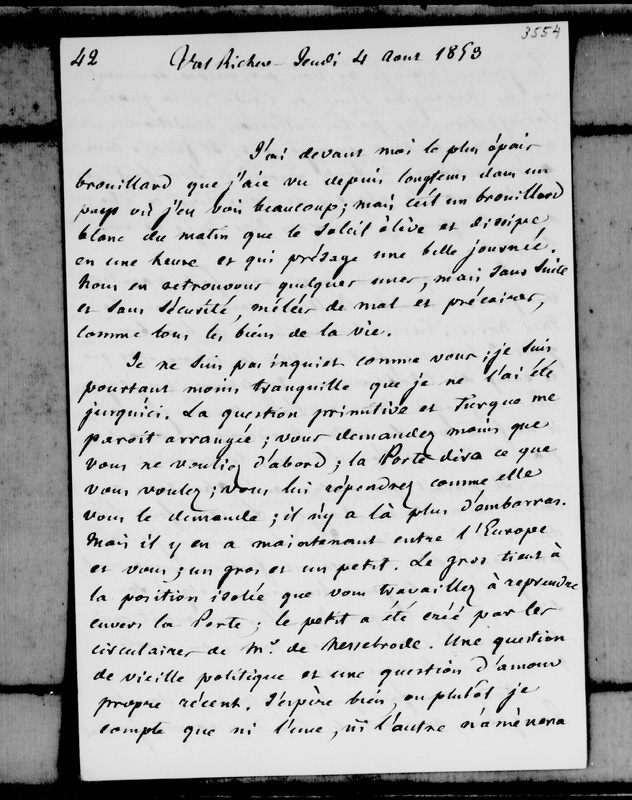 3554
42 Val Richer - Jeudi 4 Aout 1853
J'ai devant moi le plus épais
brouillard que j'aie vu depuis longtems dans un
pays où j'en vois beaucoup ; mais c'est un brouillard
blanc du matin que le soleil élève et dissipe
en une heure et qui présage une belle journée.
Nous en retrouvons quelques unes, mais sans suite
et sans sécurité, mêlées de mal et précaires,
comme tous les biens de la vie.
Je ne suis pas inquiet comme vous ; je suis
pourtant moins tranquille que je ne l'ai été
jusqu'ici. La question primitive et Turque me
paroit arrangée ; vous demandez moins que
vous ne vouliez d'abord ; la Porte dira ce que
vous voulez ; vous lui répondrez comme elle
vous le demande ; il n'y a là plus d'embarras.
Mais il y en a maintenant entre l'Europe
et vous ; un gros et un petit. Le gros tient à
la position isolée que vous travaillez à reprendre
envers la Porte ; le petit a été créé par les
circulaires de Mr. de Nesselrode. Une question
de vieille politique et une question d'amour
propre récent. J'espère bien, ou plutôt je
compte que ni l'une, ni l'autre n'amènera